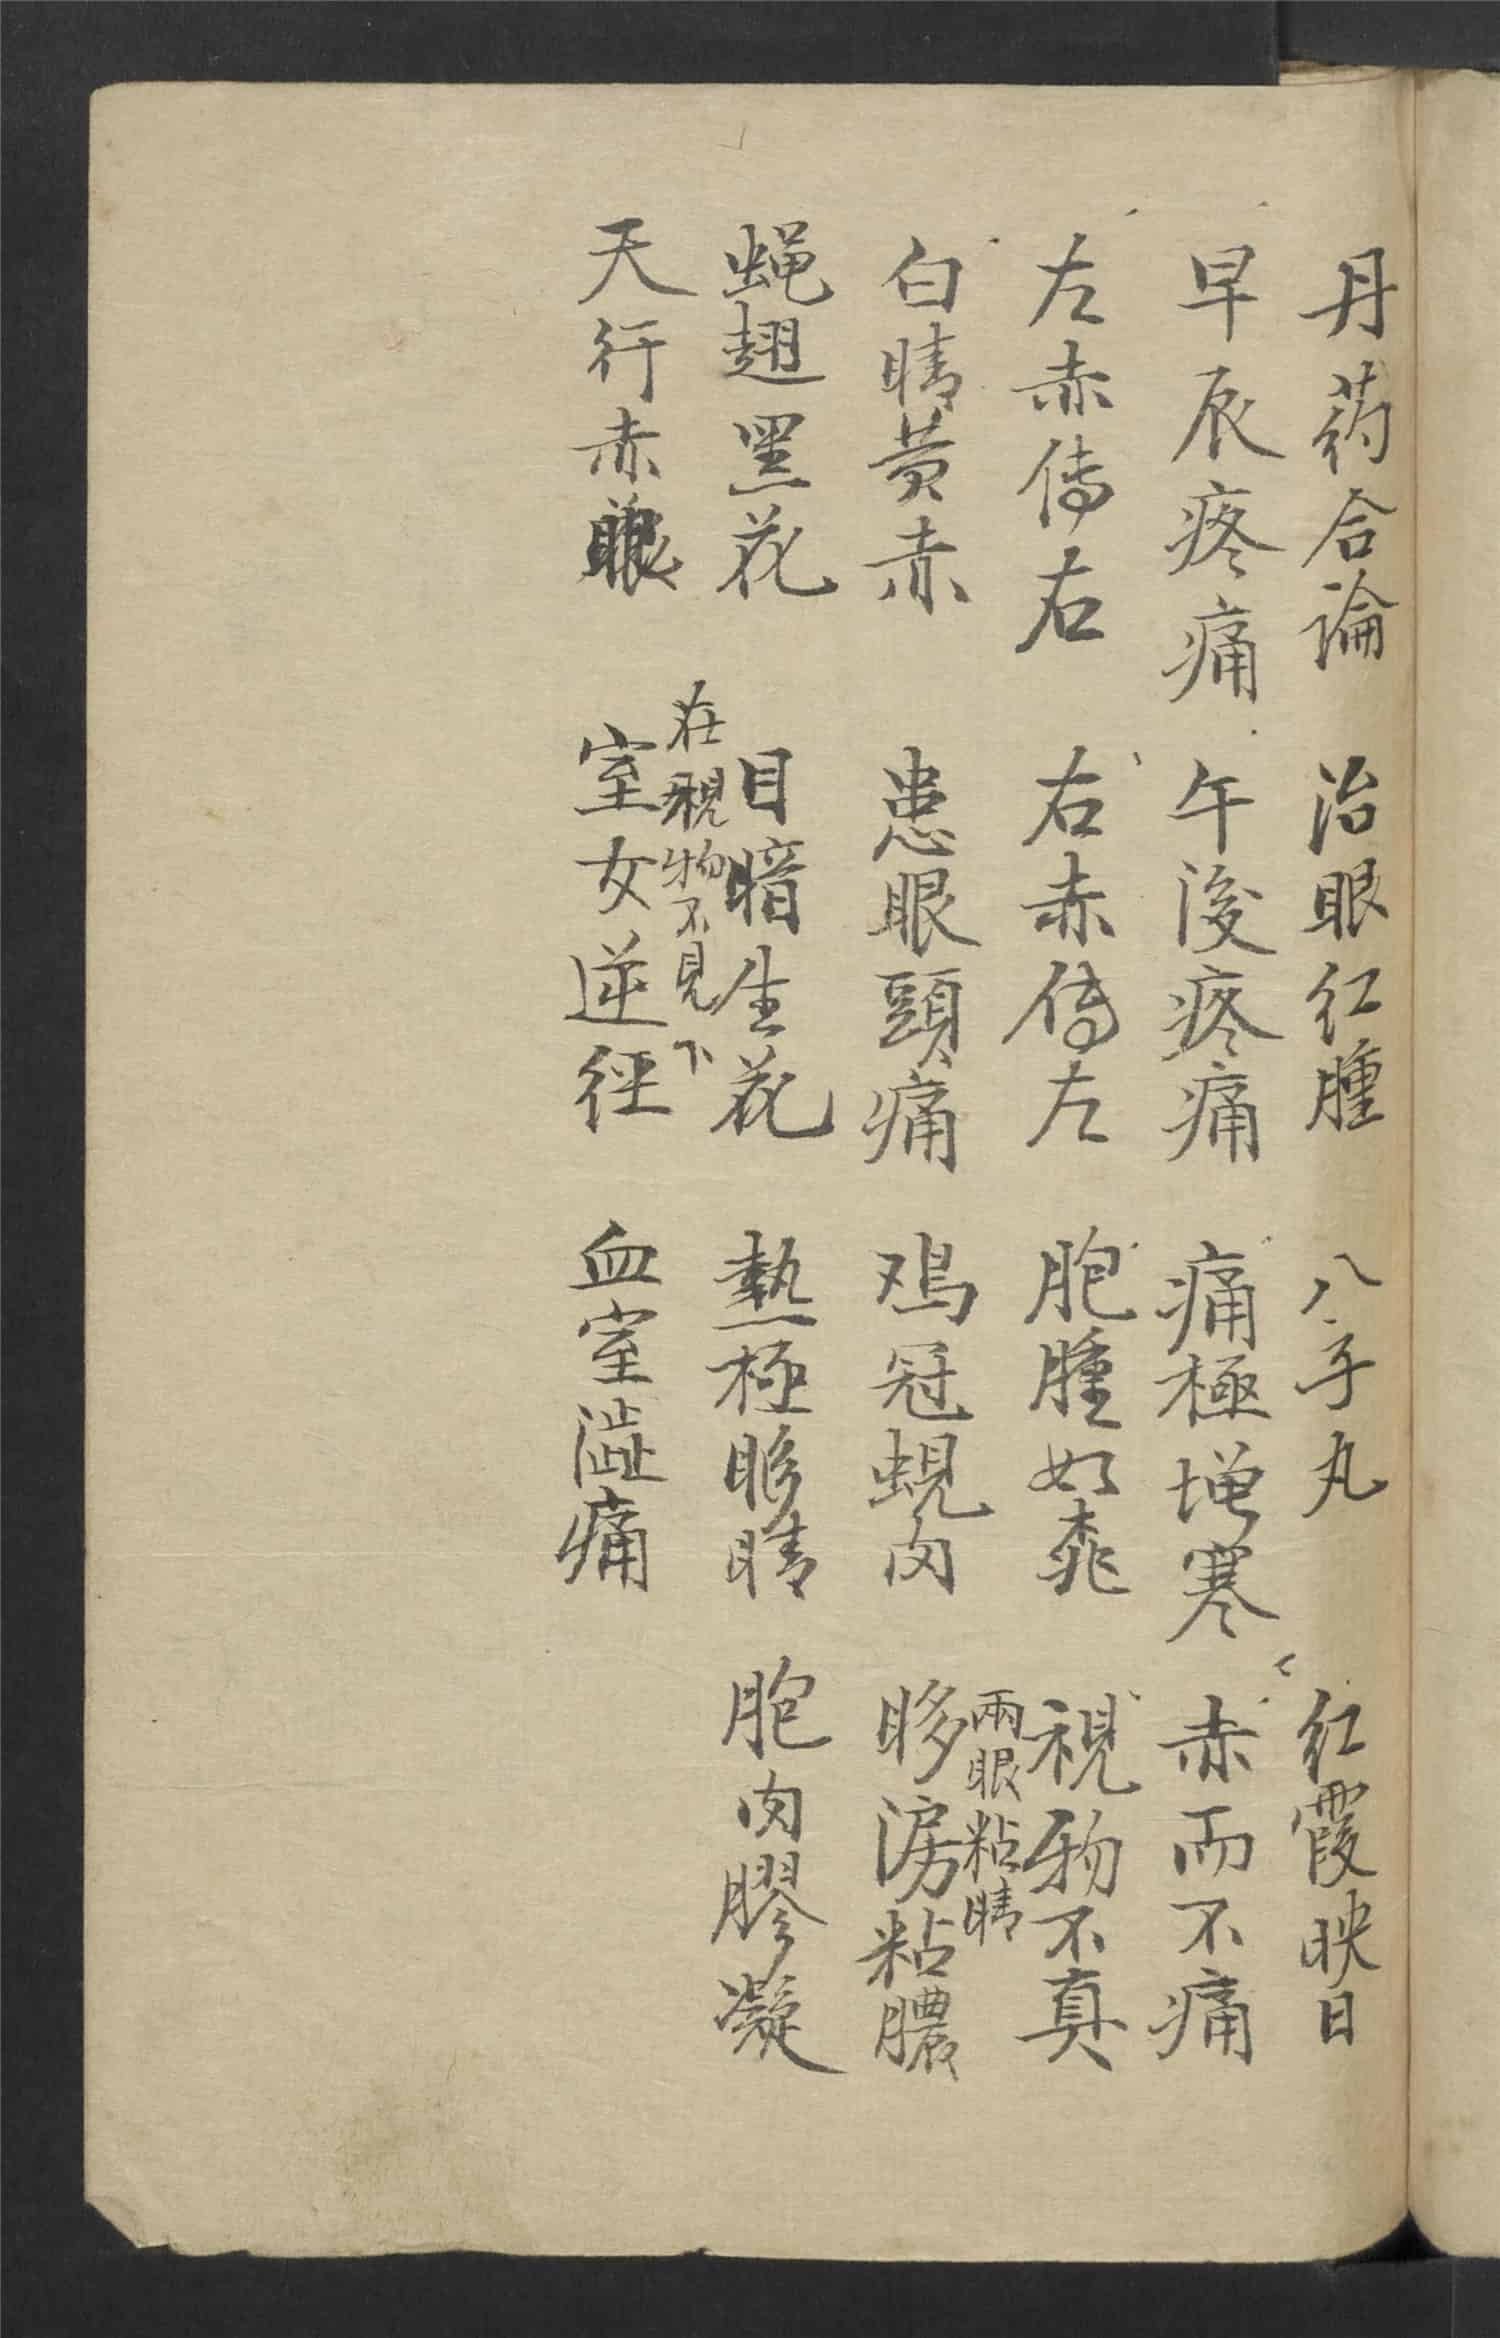 丹药合論 治眼红腫 八子丸 红霞映日
早辰疼痛 午後疼痛 痛極增寒 赤而不痛
左赤傳右 右赤傳左 胞腫如桃 視物不真
兩眼粘睛
白睛黄赤 患眼頭痛 鸡冠蜆肉 眵淚粘膿
蝇翅黑花 目暗生花 熱極眵睛 胞肉膠凝
在視物不見下
天行赤眼 室女逆经 血室澁痛